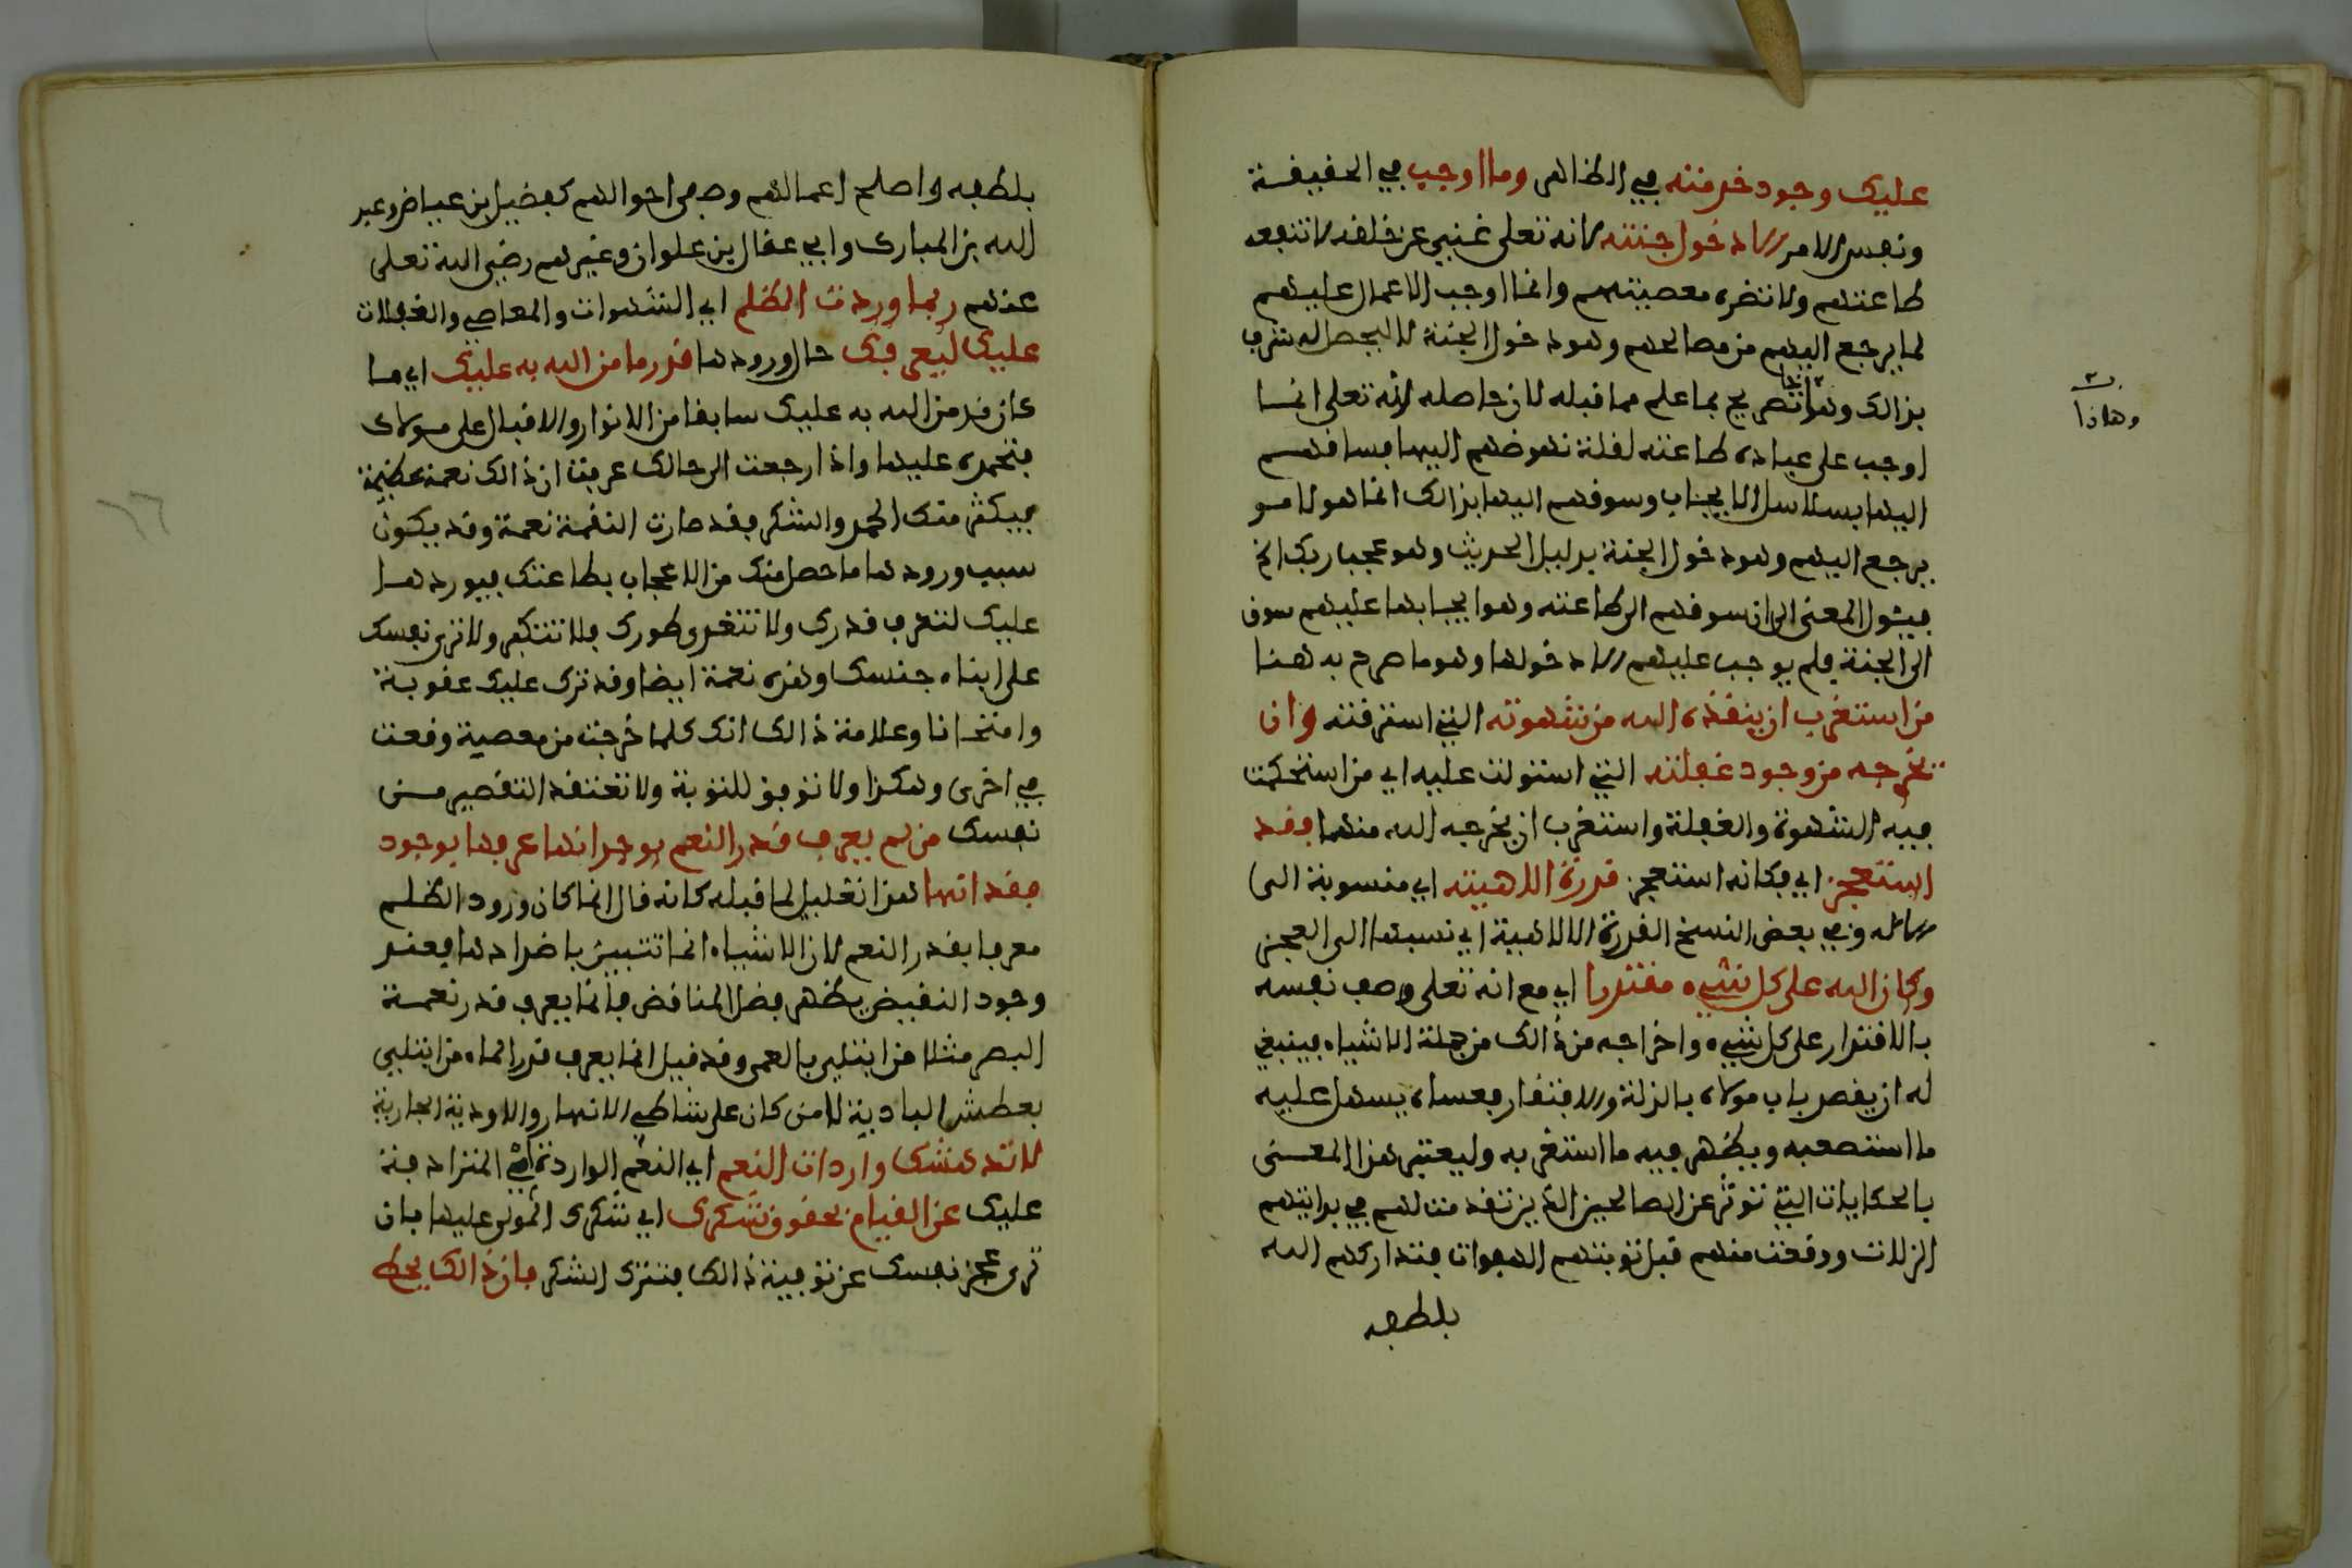 عليك وجود خدمته في الظاهر وما اوجب في الحقيقة
ونفس الامر الا دخول جنته لانه تعلى غني عن خلقه لا تنفعه
طاعتهم ولا تضره معصيتهم وانما اوجب الاعمال عليهم
لما يرجع اليهم من مصالحهم وهو دخول الجنة لا ليحصل له شرف
بذالك وهذا تصريح بما علم مما قبله لان حاصله انه تعلى انما
اوجب على عباده طاعته لقلة نهوضهم اليها فساقهم
اليها بسلاسل الايجاب وسوقهم اليها بذالك انما هو لامر
يرجع اليهم وهو دخول الجنة بدليل الحديث وهو عجب ربك الخ
فيئول المعنى الى ان سوقهم الى طاعته وهو ايجابها عليهم سوق
الى الجنة فلم يوجب عليهم الا دخولها وهو ما صرح به هنا
من استغرب ان ينقذه الله من شهوته التي استرقته وان
يخرجه من وجود غفلته التي استولت عليه اي من استحكمت
فيه الشهوة والغفلة واستغرب ان يخرجه الله منهما فقد
استعجز اي فكانه استعجز قدرة الاهيته اي منسوبة الى
الاله وفي بعض النسخ القدرة الالاهية اي نسبتها الى العجز
وكان الله على كل شيء مقتدرا اي مع انه تعلى وصف نفسه
بالاقتدار على كل شيء واخراجه من ذالك من جملة الاشياء فينبغي
له ان يقصر باب مولاه بالذلة والافتقار فعساه يسهل عليه
ما استصعبه ويظهر فيه ما استغربه وليعتبر هذا المعنى
بالحكايات التي تؤثر عن الصالحين الذين تقدمت لهم في بدايتهم
الزلات ووقعت منهم قبل توبتهم الهفوات فتداركهم الله
بلطفه
وهاذا
بلطفه واصلح اعمالهم وصفى احوالهم كفضيل ابن عياض وعبد
الله بن المبارك وابي عقال ابن علوان وغيرهم رضي الله تعلى
عنهم ربما وردت الظلم اي الشهوات والمعاصي والغفلات
عليك ليعرفك حال ورودها قدر ما من الله به عليك اي ما
كان قد من الله به عليك سابقا من الانوار والاقبال على مولاك
فتحمده عليها واذا رجعت الى حالك عرفت ان ذالك نعمة عظيمة
فيكثر منك الحمد والشكر فقد صارت النقمة نعمة وقد يكون
سبب ورودها ما حصل منك من الاعجاب بطاعتك فيوردها
عليك لتعرف قدرك ولا تتعد طورك فلا تتكبر ولا ترى نفسك
على ابناء جنسك وهذه نعمة ايضا وقد ترد عليك عقوبة
وامتحانا وعلامة ذالك انك كلما خرجت من معصية وقعت
في اخرى وهكذا ولا توفق للتوبة ولا تعتقد التقصير من
نفسك من لم يعرف قدر النعم بوجدانها عرفها بوجود
فقدانها هذا تعليل لما قبله كانه قال انما كان ورود الظلم
معرفا بقدر النعم لان الاشياء انما تتبين باضدادها فعند
وجود النقيض يظهر فضل المناقض فانما يعرف قدر نعمة
البصر مثلا من ابتلي بالعمى وقد قيل انما يعرف قدر الماء من ابتلي
بعطش البادية لا من كان على شاطي الانهار والاودية الجارية
لا تدهشك واردات النعم اي النعم الواردة اي المترادفة
عليك عن القيام بحقوق شكرك اي شكرك المولى عليها بان
ترى عجز نفسك عن توفية ذالك فتترك الشكر فان ذالك يحط